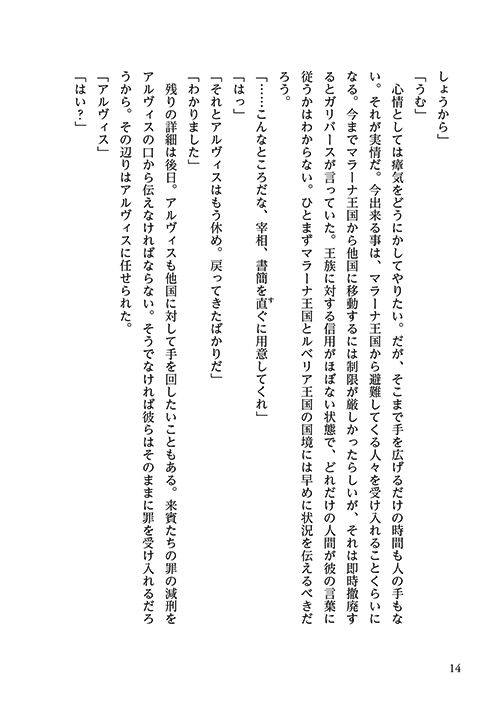 しょうから」
「うむ」
　心情としては瘴気をどうにかしてやりたい。だが、そこまで手を広げるだけの時間も人の手もな
い。それが実情だ。今出来る事は、マラーナ王国から避難してくる人々を受け入れることくらいに
なる。今までマラーナ王国から他国に移動するには制限が厳しかったらしいが、それは即時撤廃す
るとガリバースが言っていた。王族に対する信用がほぼない状態で、どれだけの人間が彼の言葉に
従うかはわからない。ひとまずマラーナ王国とルベリア王国の国境には早めに状況を伝えるべきだ
ろう。
「……こんなところだな、宰相、書簡を直ぐに用意してくれ」
す
「はっ」
「それとアルヴィスはもう休め。戻ってきたばかりだ」
「わかりました」
　残りの詳細は後日。アルヴィスも他国に対して手を回したいこともある。来賓たちの罪の減刑を
アルヴィスの口から伝えなければならない。そうでなければ彼らはそのままに罪を受け入れるだろ
うから。その辺りはアルヴィスに任せられた。
「アルヴィス」
「はい？」
14